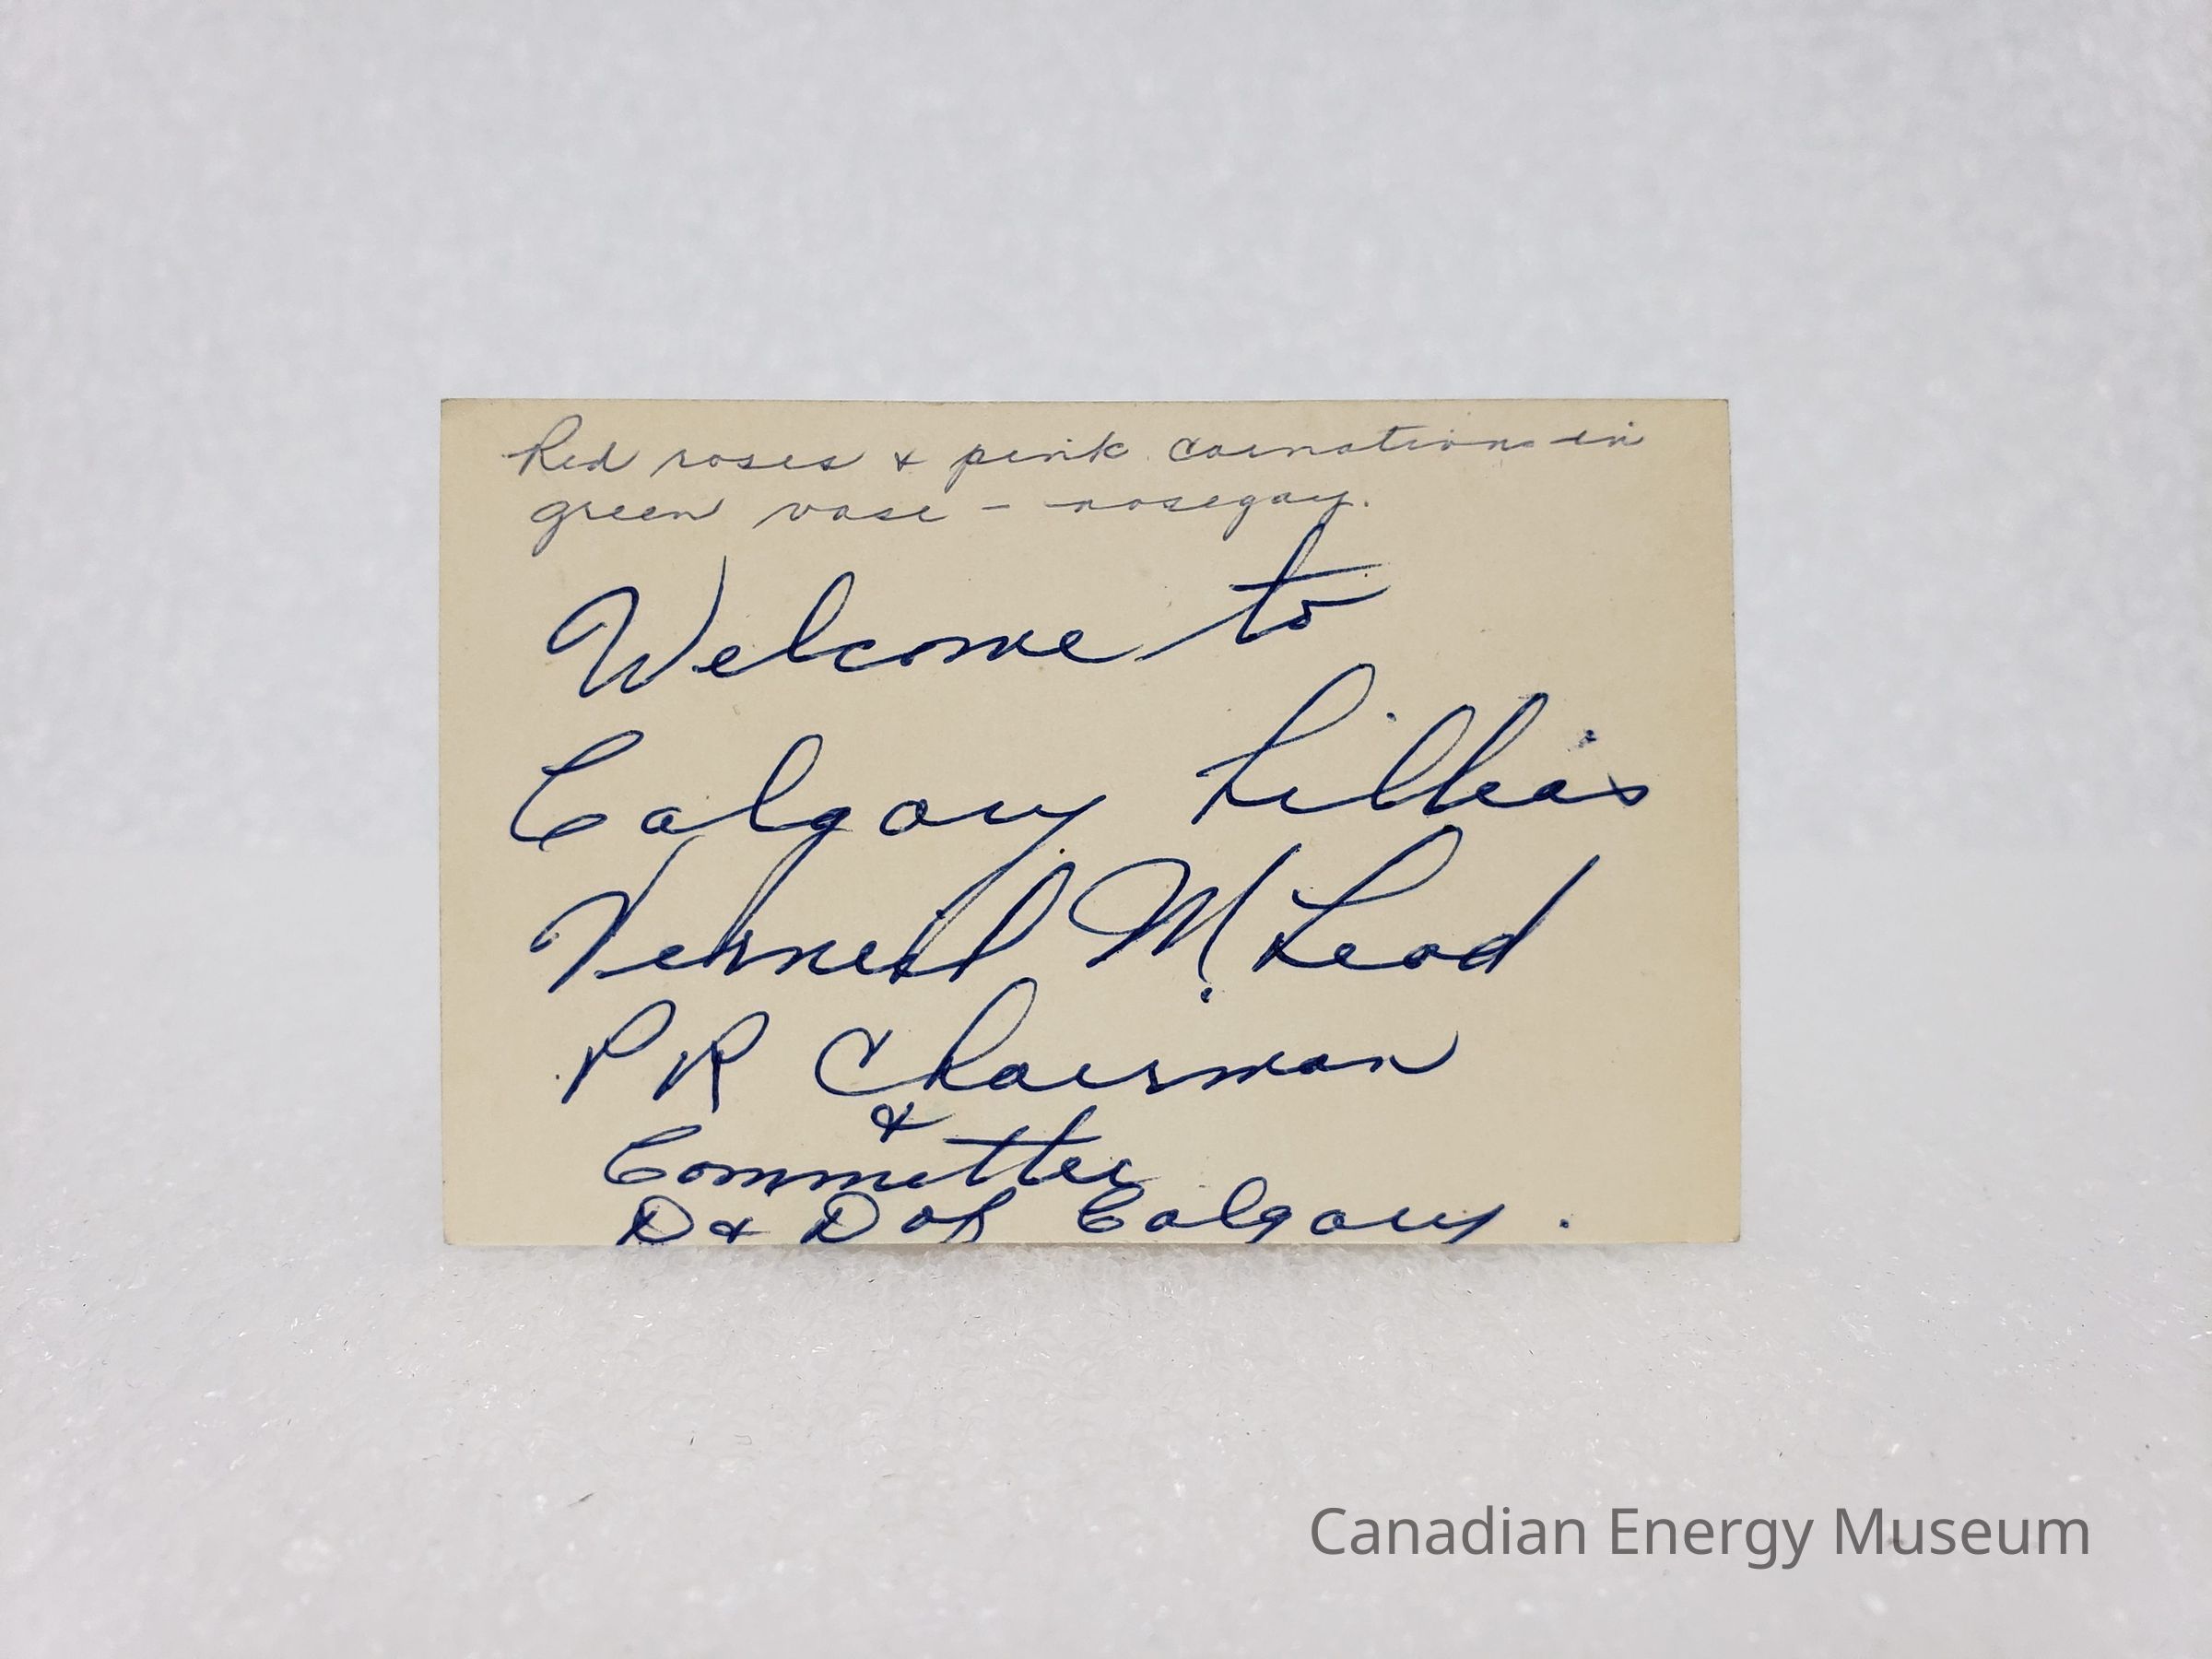 Red roses & pink carnations in
green vase - nosegay.
Welcome to
Calgary Lillias
Verneil McLeod
PR Chairman
&
Committee
D & D of Calgary.
Canadian Energy Museum